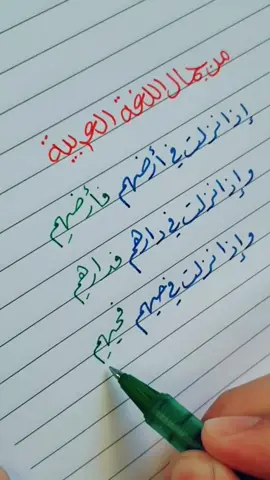 من جمال اللغة العربية
إذا نزلت في أرضهم فأرضهِم
وإذا نزلت في دارهم فدارهِم
وإذا نزلت في حيهم فحيهِم